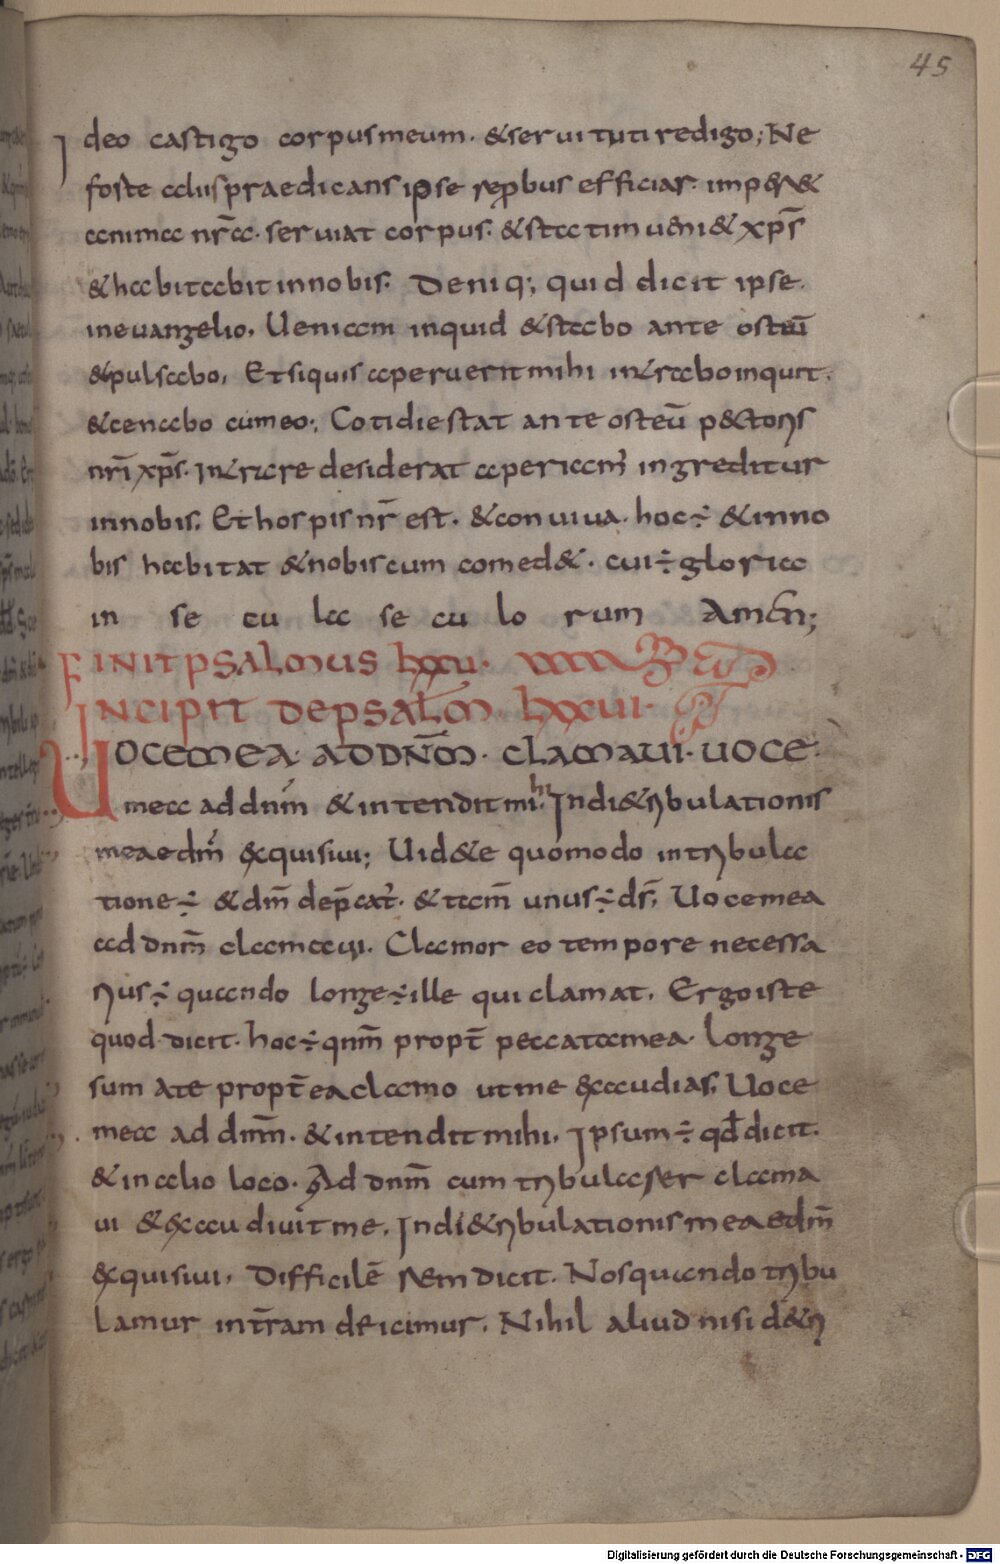 45
Ideo castigo corpus meum. & seruituti redigo; Ne
forte aliis praedicans ipse reprobus efficiar. imper&
anima nr̄a. seruiat corpus. & statim ueni& xp̄s
& habitabit in nobis. Deniq; quid dicit ipse.
in euangelio. Ueniam inquid & stabo ante osteū
& pulsabo. Et si quis aperuerit mihi intrabo inquit.
& cenabo cum eo; Cotidie stat ante osteū pectoris
nr̄i xp̄s. Intrare desiderat aperiam' ingreditur
in nobis. Et hospis nr̄ est. & conuiua. hoc ÷ & in no
bis habitat & nobiscum comed&. cui ÷ gloria
in se cu la se cu lo rum Amen;
FINIT PSALMUS LXXU.
INCIPIT DE PSALM LXXUI.
UOCE MEA AD DN̄M. CLAMAUI. UOCE
mea ad dnm̄ & intendit mihi. In die tribulationis
meae dm̄ exquisiui; Uid&e quomodo in tribula
tione ÷ & dm̄ dep̄cat'. & tam̄ unus ÷ ds̄; Uoce mea
ad dnm̄ clamaui. Clamor eo tempore necessa
rius ÷ quando longe ÷ ille qui clamat. Ergo iste
quod dicit. hoc ÷ qnm̄ propt̄ peccata mea. longe
sum a te propt̄ea clamo ut me exaudias. Uoce
mea ad dnm̄. & intendit mihi. Ipsum ÷ qd̄ dicit.
& in alio loco. Ad dnm̄ cum tribularer clama
ui & exaudiuit me. In die tribulationis meae dm̄
exquisiui. Difficilē rem dicit. Nos quando tribu
lamur in tr̄am deicimur. Nihil aliud nisi de tri
Digitalisierung gefördert durch die Deutsche Forschungsgemeinschaft - DFG